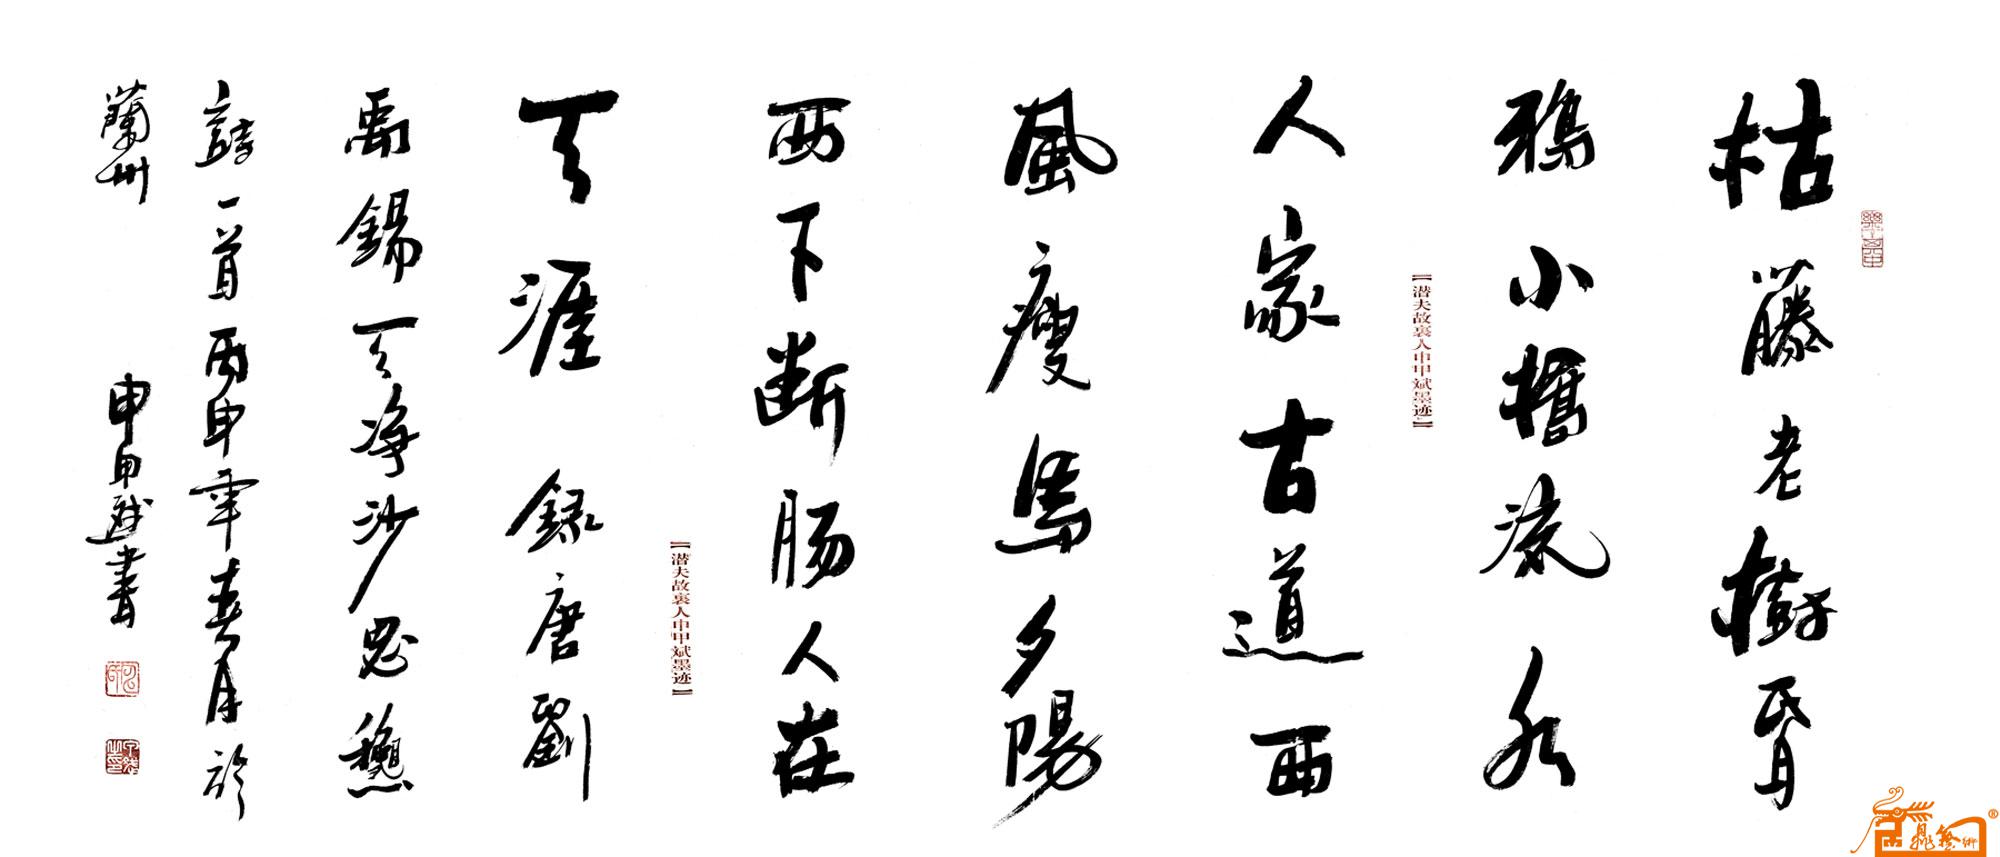 枯藤老樹昏
鴉小橋流水
【潜夫故裏人申甲斌墨迹】
人家古道西
風瘦馬夕陽
西下断肠人在
【潜夫故裏人申甲斌墨迹】
天涯 録唐劉
禹錫天净沙思龝
詩一首丙申年春月於
蘭州 申甲斌書